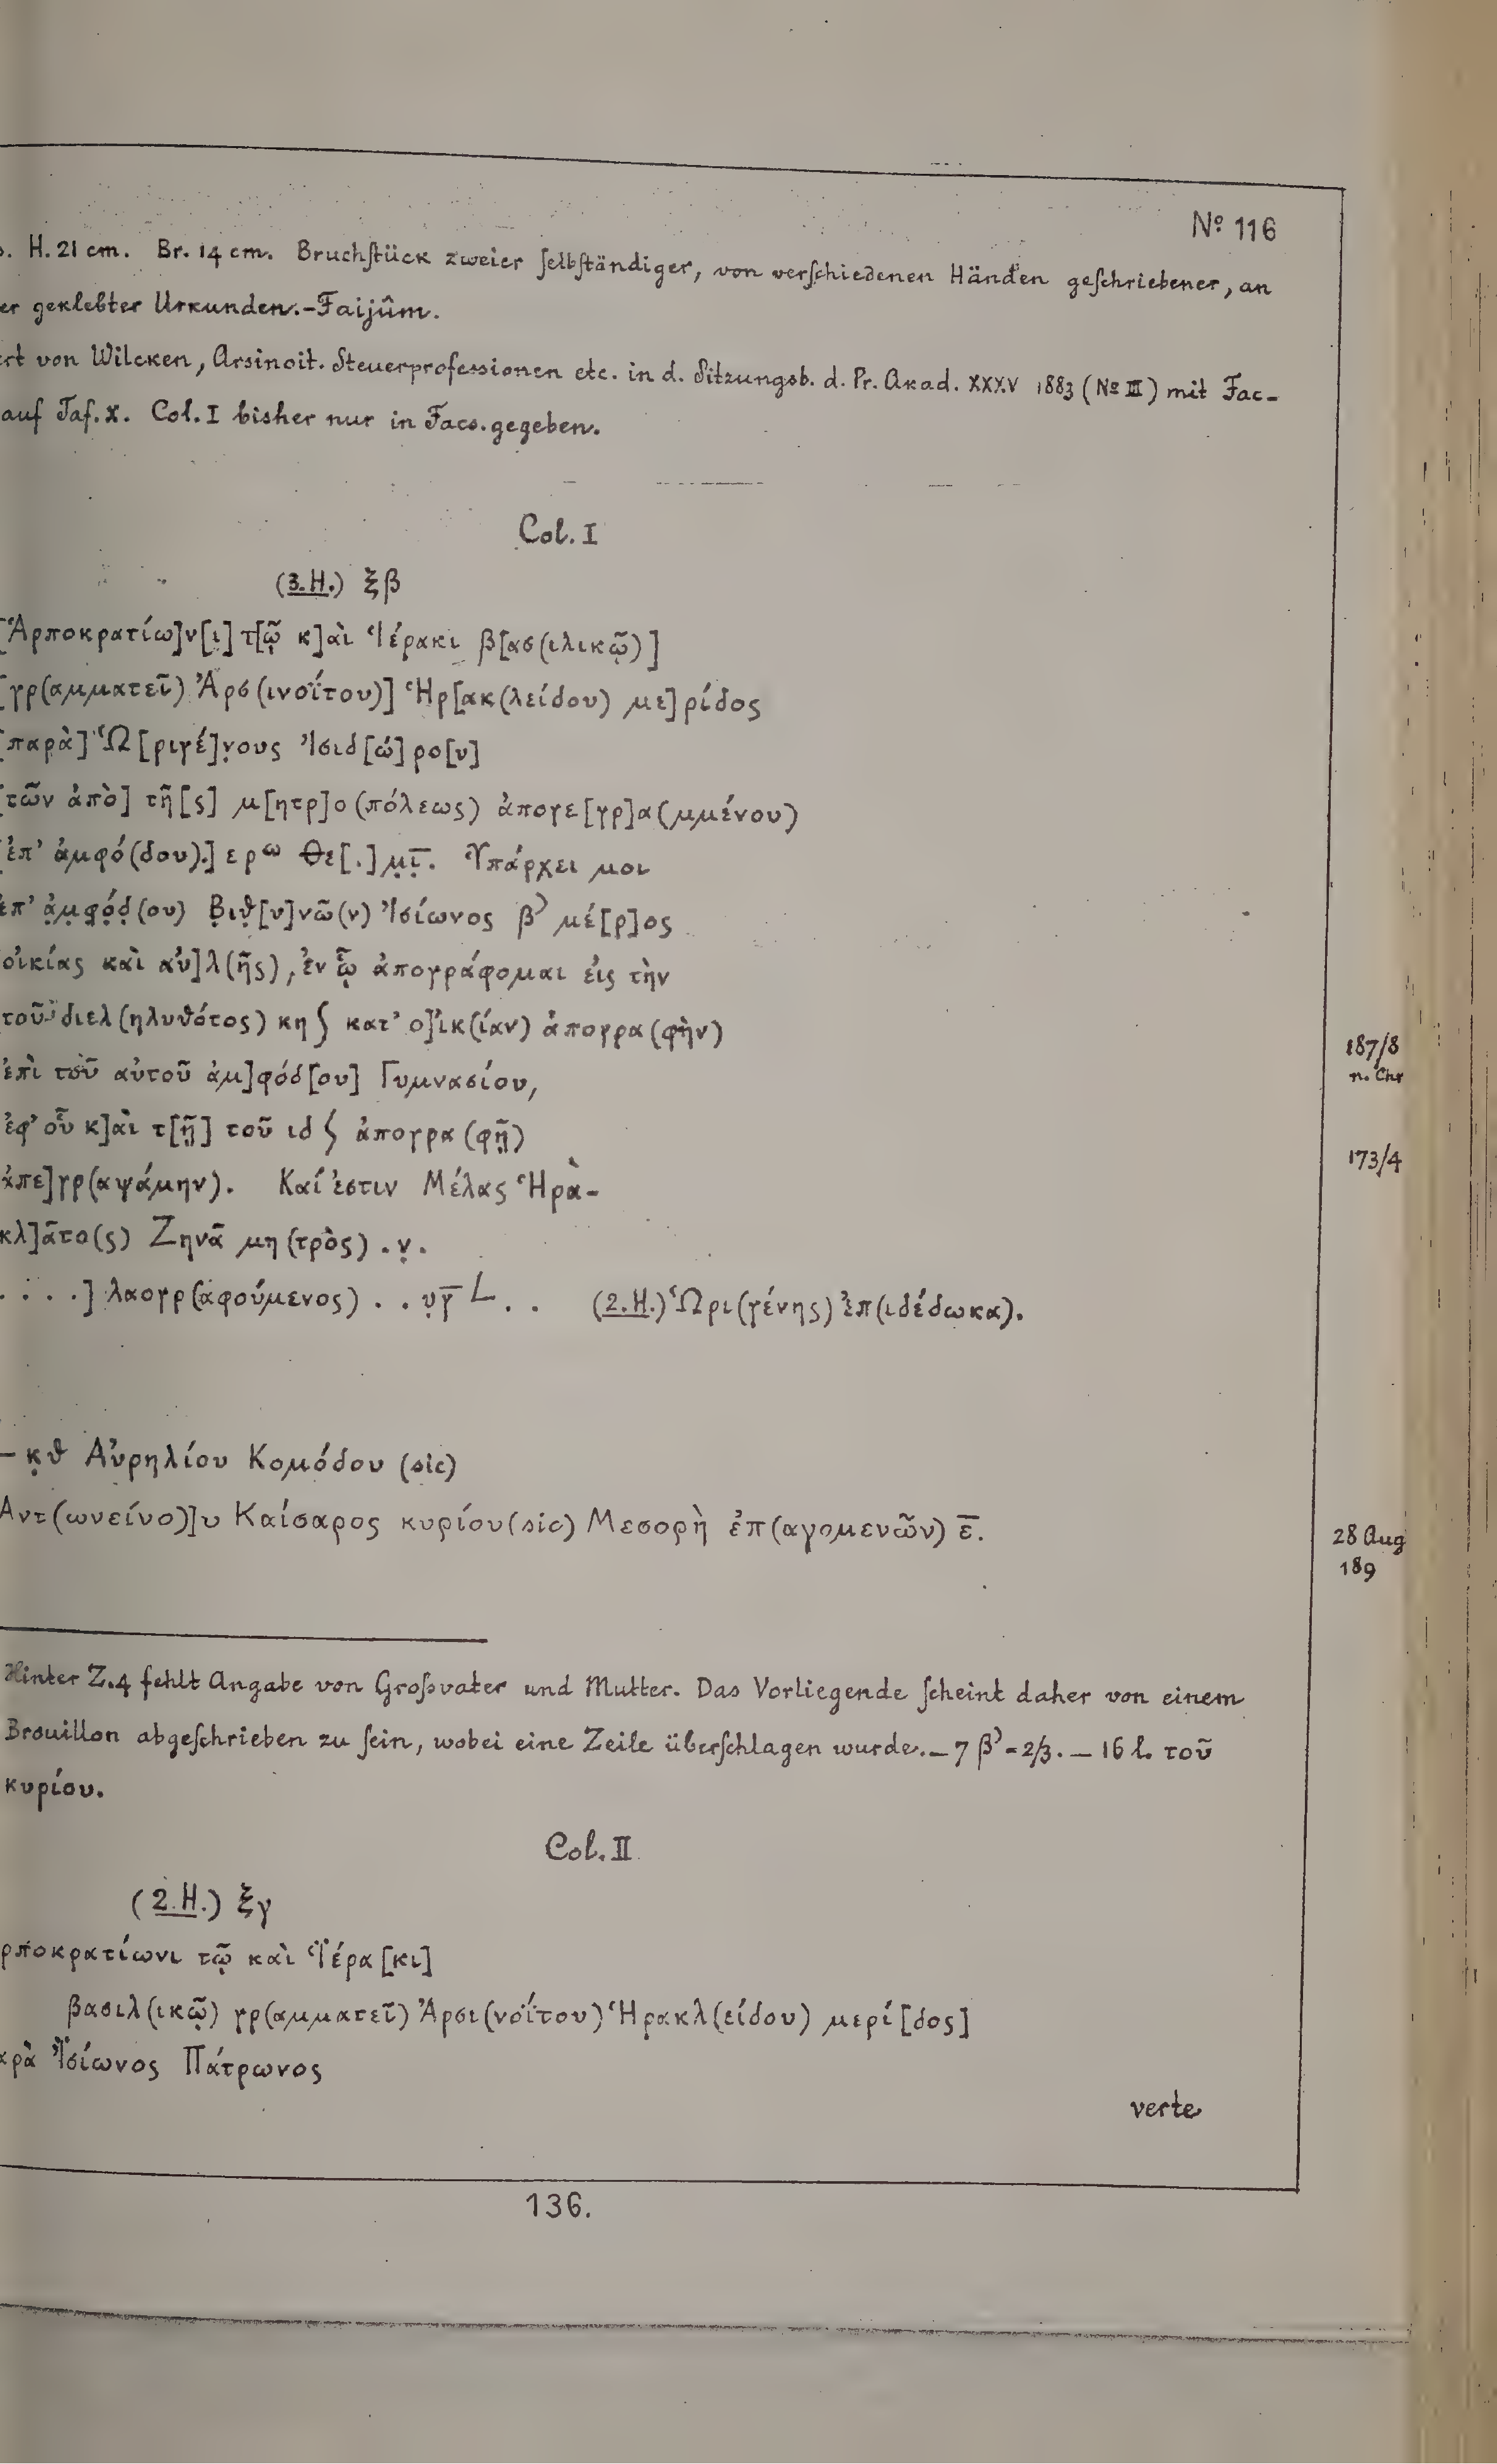 Nº 116
. H. 21 cm. Br. 14 cm. Bruchstück zweier selbständiger, von verschiedenen Händen geschriebener, an
er geklebter Urkunden.-Faijûm.
rt von Wilcken, Arsinoit. Steuerprofessionen etc. in d. Sitzungsb. d. Pr. Akad. XXXV 1883 (Nº III) mit Fac-
auf Taf. X. Col. I bisher nur in Facs. gegeben.
Col. I
(3. H.) ξβ
[Ἁρποκρατίω]ν[ι] τ[ῷ κ]αὶ Ἱέρακι β[ασ(ιλικῷ)]
[γρ(αμματεῖ) Ἀρσ(ινοΐτου)] Ἡρ[ακ(λείδου) με]ρίδος
[παρὰ] Ὡ[ριγέ]ν̣ους Ἰσιδ[ώ]ρο[υ]
[τῶν ἀπὸ] τῆ[ς] μ[ητρ]ο(πόλεως) ἀπογε[γρ]α(μμένου)
[ἐπ' ἀμφό(δου).] ερω Θε[.]μ̣ι̣̅. Ὑπάρχει μοι
ἐπ' ἀ̣μ̣φ̣ό̣δ̣(ου) Β̣ιθ̣[υ]νῶ(ν) Ἰσίωνος β' μέ[ρ]ος
οἰκίας καὶ αὐ]λ(ῆς), ἐν ᾧ ἀπογράφομαι εἰς τὴν
τοῦ διελ(ηλυθότος) κη ʃ κατ' ο]ἰκ(ίαν) ἀπογρα(φὴν) 187/8 n. Chr
ἐπὶ τοῦ αὐτοῦ ἀμ]φόδ[ου] Γυμνασίου,
ἐφ' οὗ κ]αὶ τ[ῇ] τοῦ ιδ ʃ ἀπογρα(φῇ) 173/4
ἀπε]γρ(αψάμην). Καί ἐστιν Μέλας Ἡρὰ-
κλ]ᾶτο(ς) Ζηνᾶ μη(τρὸς) . ν̣.
. . . .] λαογρ(αφούμενος) . . υ̣γ̅ L . . (2. H.) Ὡρι(γένης) ἐπ(ιδέδωκα).
– κ̣θ Αὐρηλίου Κομόδου (sic)
Ἀντ(ωνείνο)]υ Καίσαρος κυρίου (sic) Μεσορὴ ἐπ(αγομενῶν) ε̅. 28 Aug 189
Hinter Z. 4 fehlt Angabe von Großvater und Mutter. Das Vorliegende scheint daher von einem
Brouillon abgeschrieben zu sein, wobei eine Zeile überschlagen wurde. – 7 β' = 2/3. – 16 l. τοῦ
κυρίου.
Col. II
(2. H.) ξγ
ρποκρατίωνι τῷ καὶ Ἱέρα[κι]
βασιλ(ικῷ) γρ(αμματεῖ) Ἀρσι(νοΐτου) Ἡρακλ(είδου) μερί[δος]
αρὰ Ἰσίωνος Πάτρωνος
verte
136.